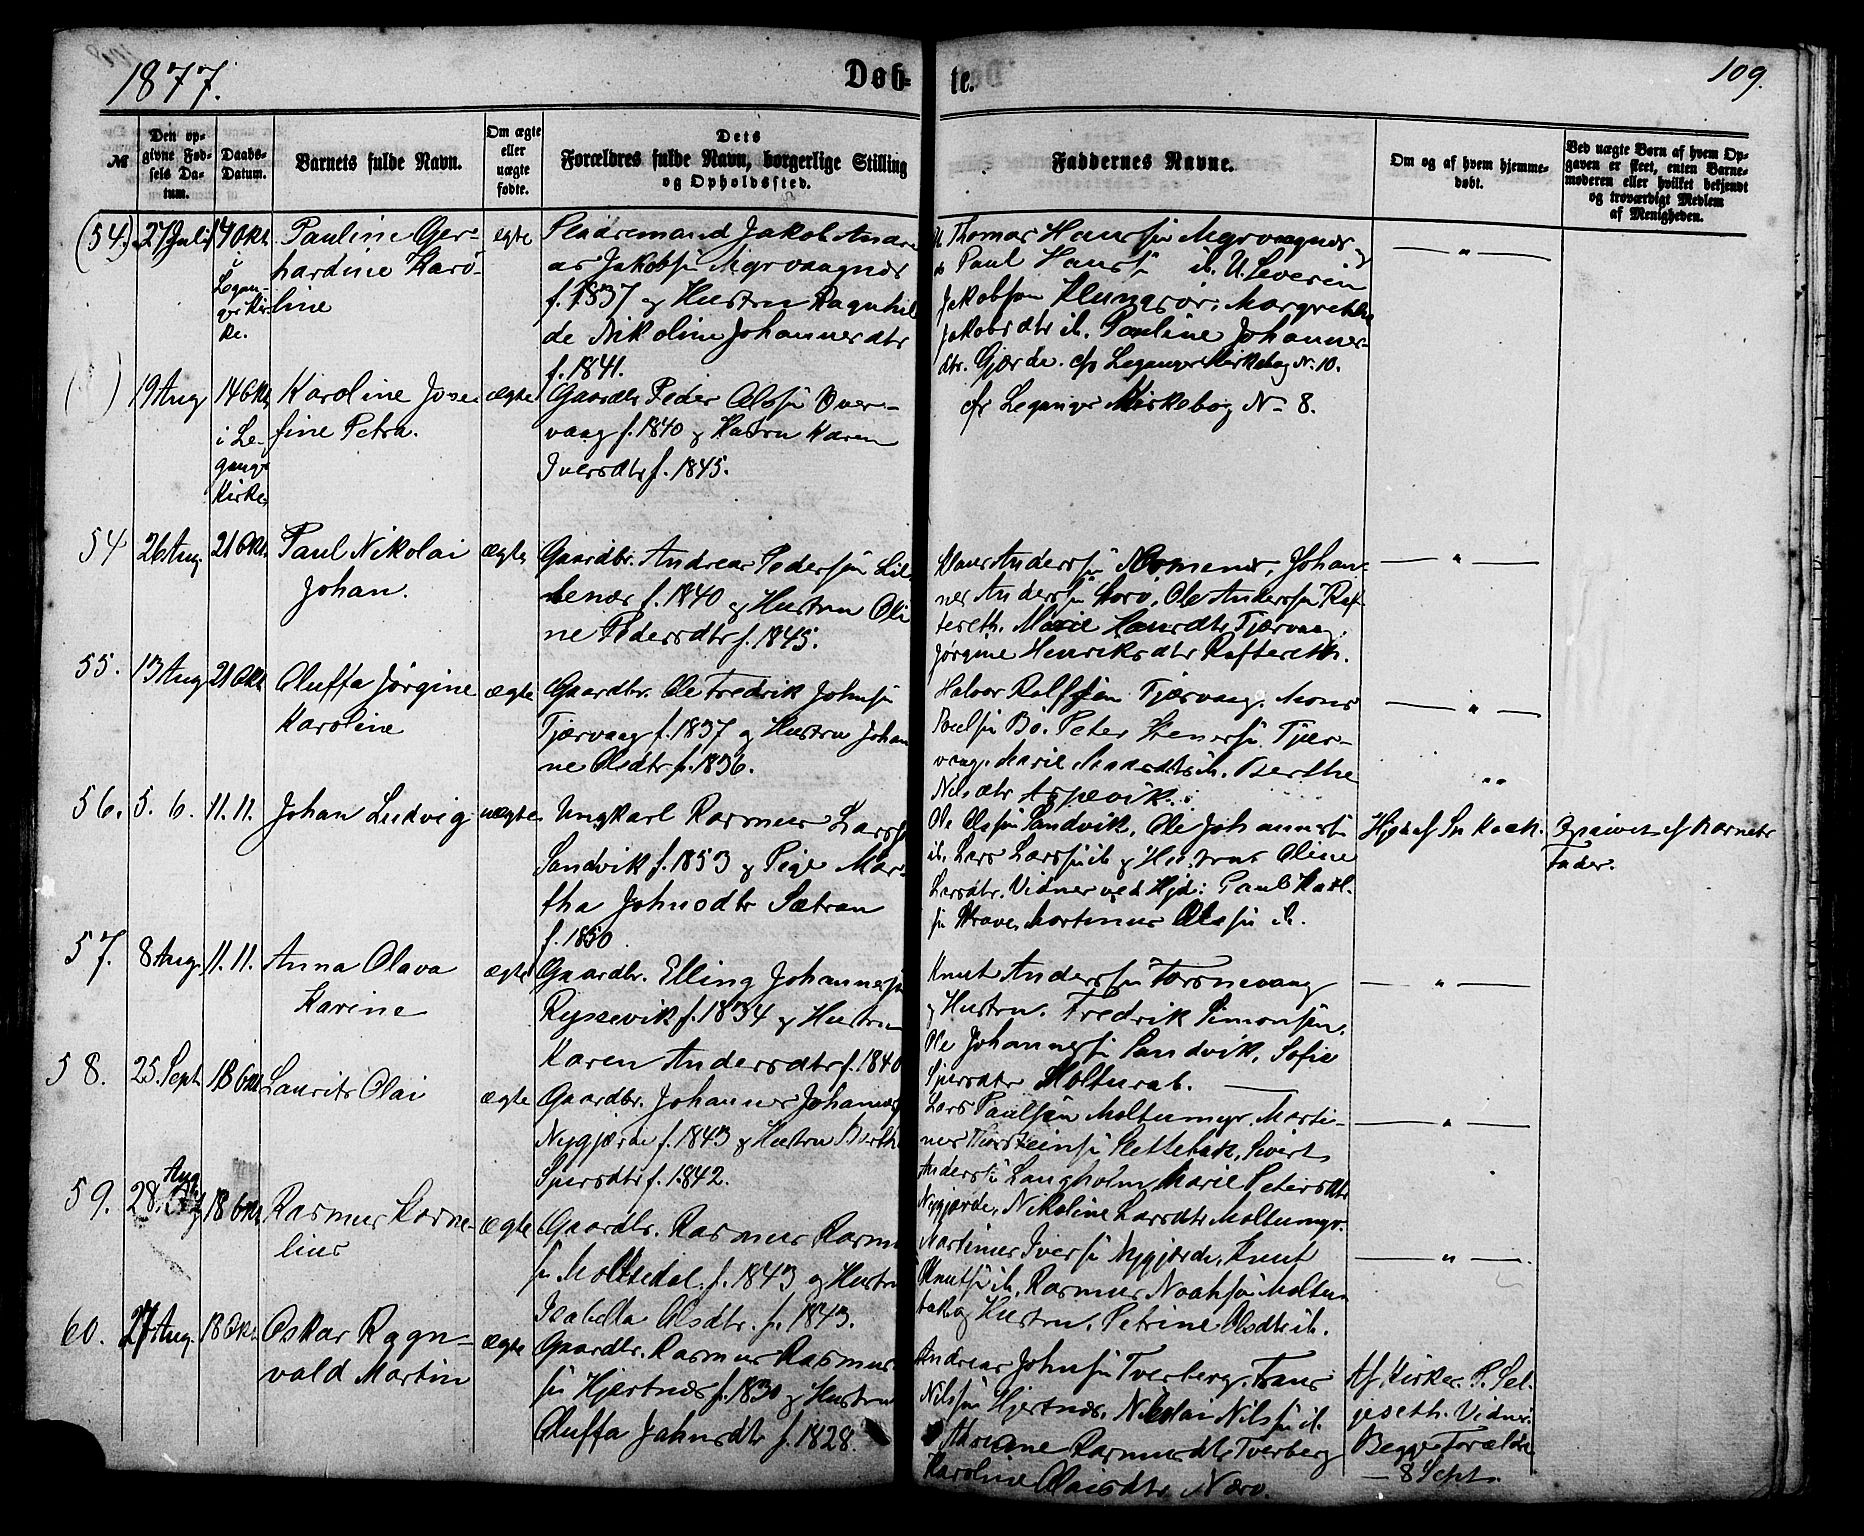 1877.
Døb-
te.
109.
№
Den op-
givne Fød-
sels Da-
tum.
Daabs-
Datum.
Barnets fulde Navn.
Om ægte
eller
uægte
fødte.
Dets
Forældres fulde Navn, borgerlige Stilling
og Opholdssted.
Faddernes Navne.
Om og af hvem hjemme-
døbt.
Ved uægte Børn af hvem Op-
gaven er skeet, enten Barne-
moderen eller hvilket bekjendt
og troværdigt Medlem
af Menigheden.
(54.)
27 Juli
Okt.
i
Legan-
ger Kir-
ke.
Pauline Ger-
hardine Karo-
line
ægte
Jakob Andre
as Jakobsøn
f. 1837 og Hustru Ragnhil
de Nikoline Johannesdtr
f. 1841.
Thomas Hanssøn
Paul Hanssøn ib. Severin
Jakobsøn Klungsør, Margrethe
Jakobsdtr ib. Pauline Johannes-
dtr. Gjærde. cfr Leganger Kirkebog Nr. 10.
— " —
19 Aug
14 Okt.
i Le-
ganger
Kirke
Karoline Jose
fine Petra.
ægte
Gaardbr Peder Olssøn Over-
vaag f. 1840 og Hustru Karen
Iversdtr f. 1845.
cfr Leganger Kirkebog Nr 8.
54
26 Aug.
21 Okt.
Paul Nikolai
Johan.
ægte
Gaardbr. Andreas Pederssøn Lil
lenæs f. 1840 og Hustru Oli
ne Pedersdtr f. 1845.
Hans Anderssøn Johan-
nes Anderssøn Ole Anderssøn Raf-
teseth. Marie Hansdtr Tjærvaag,
Jørgine Henriksdtr Rafteseth.
— " —
55.
13 Aug
21 Okt
Oluffa Jørgine
Karoline
ægte
Gaardbr. Ole Fredrik Johnsøn
Tjærvaag f. 1837 og Hustru Johan
ne Olsdtr f. 1836.
Halvor Rolfsøn Tjærvaag, Mons
Poulsøn Bø. Peter Tjær-
vaag, Marie ib. Berthe
Nilsdtr Aspevik.
— " —
56.
5. 6.
11. 11.
Johan Ludvig
uægte
Ungkarl Rasmus Larssøn
Sandvik f. 1853 og Pige Mar-
tha Johnsdtr Sætran
f. 1850
Ole Olssøn Sandvik, Ole Johannessøn
ib. Lars Larssøn ib og Hustru Oline
Larsdtr. Vidner ved Hjd: Paul Karl-
søn Martinus Olssøn ib.
" "
Hjd af Sn Koch.
Opgivet af Barnets
Fader.
57.
8 Aug.
11. 11.
Anna Olava
Karine
ægte
Gaardbr. Elling Johannessøn
Ryssevik f. 1834 og Hustru
Karen Andersdtr f. 1840
Knut Anderssøn Torsnevaag
og Hustru. Fredrik Simonsøn,
Ole Johannessøn Sandvik, Sofie
Sjursdtr Moltubak.
— " —
58.
25. Sept
18 Okt
Laurits Olai
ægte
Gaardbr. Johannes Johannessøn
Nygjærde f. 1843 og Hustru Berthe
Sjursdtr f. 1842.
Lars Paulsøn Moltumyr, Marti-
nus Thorsteinsøn Slettebak, Sivert
Anderssøn Langholm, Marie Petersdtr
Nygjærde, Nikoline Larsdtr Moltumyr.
— " —
59.
28.
Aug.
18 Okt
Rasmus Korne-
lius
ægte
Gaardbr. Rasmus Rasmus
søn Moltudal f. 1843 og Hustru
Isabella Olsdtr. f. 1843.
Martinus Iverssøn Nygjærde, Knut
Knutsøn ib, Rasmus Noahsøn Moltu
bak og Hustru, Petrine Olsdtr ib.
— " —
60.
27 Aug.
18 Okt.
Oskar Ragn-
vald Martin
ægte
Gaardbr. Rasmus Rasmus
søn Hjærtnæs f. 1830 og Hustru
Oluffa Johnsdtr f. 1828.
Andreas Johnsøn Tverberg, Frans
Nilssøn Hjertnæs, Nikolai Nilssøn ib.
Rasmusdtr Tverberg
Karoline Olaisdtr Nærø.
Af Kirkes. P. Sel-
geseth. Vidner
Begge Forældre
— 8 Sept.